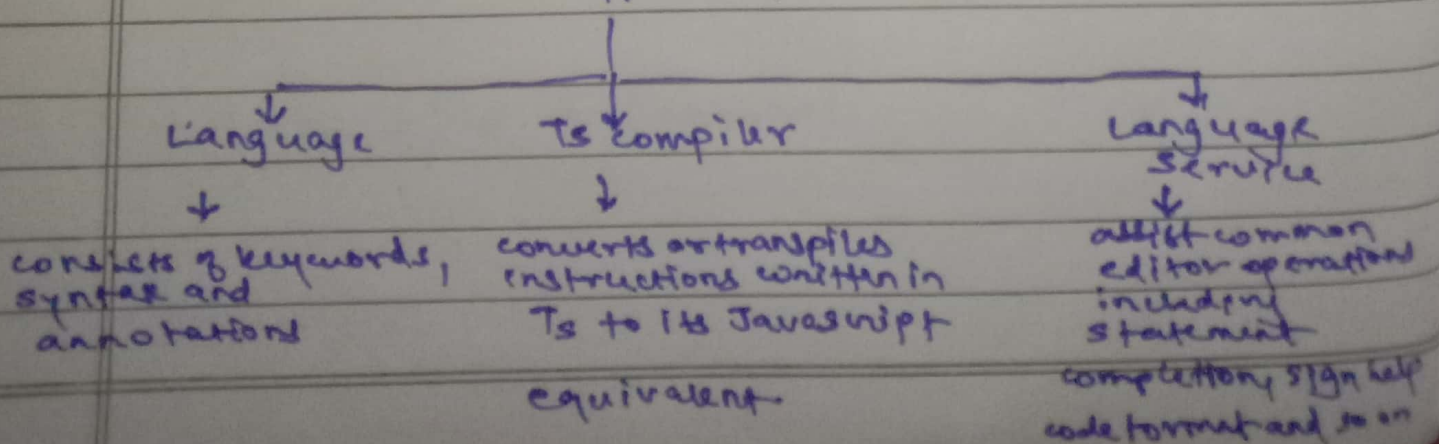 Language
↓
consists of keywords,
syntax and
annotations
Ts Compiler
↓
converts or transpiles
instructions written in
Ts to its Javascript
equivalent.
Language
Service
↓
assist common
editor operations
including
statement
completion, sign help
code format and so on